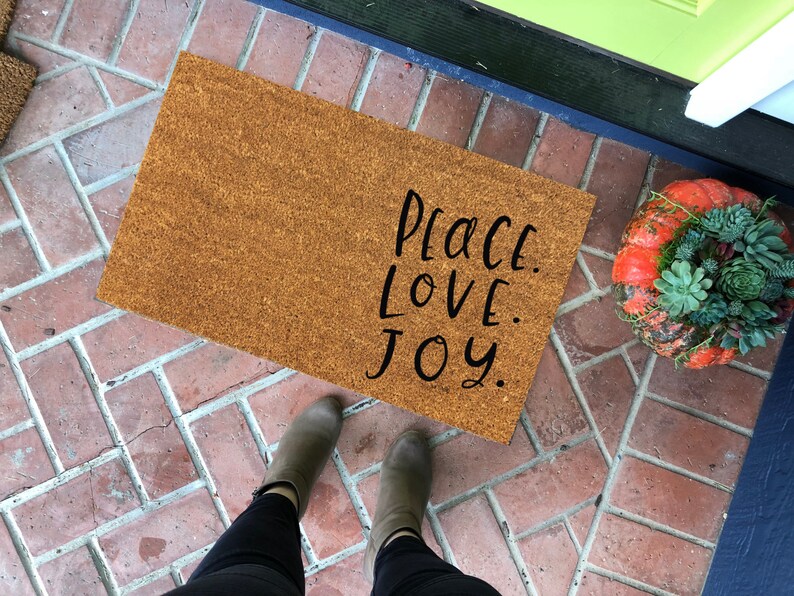 PEACE.
LOVE.
JOY.